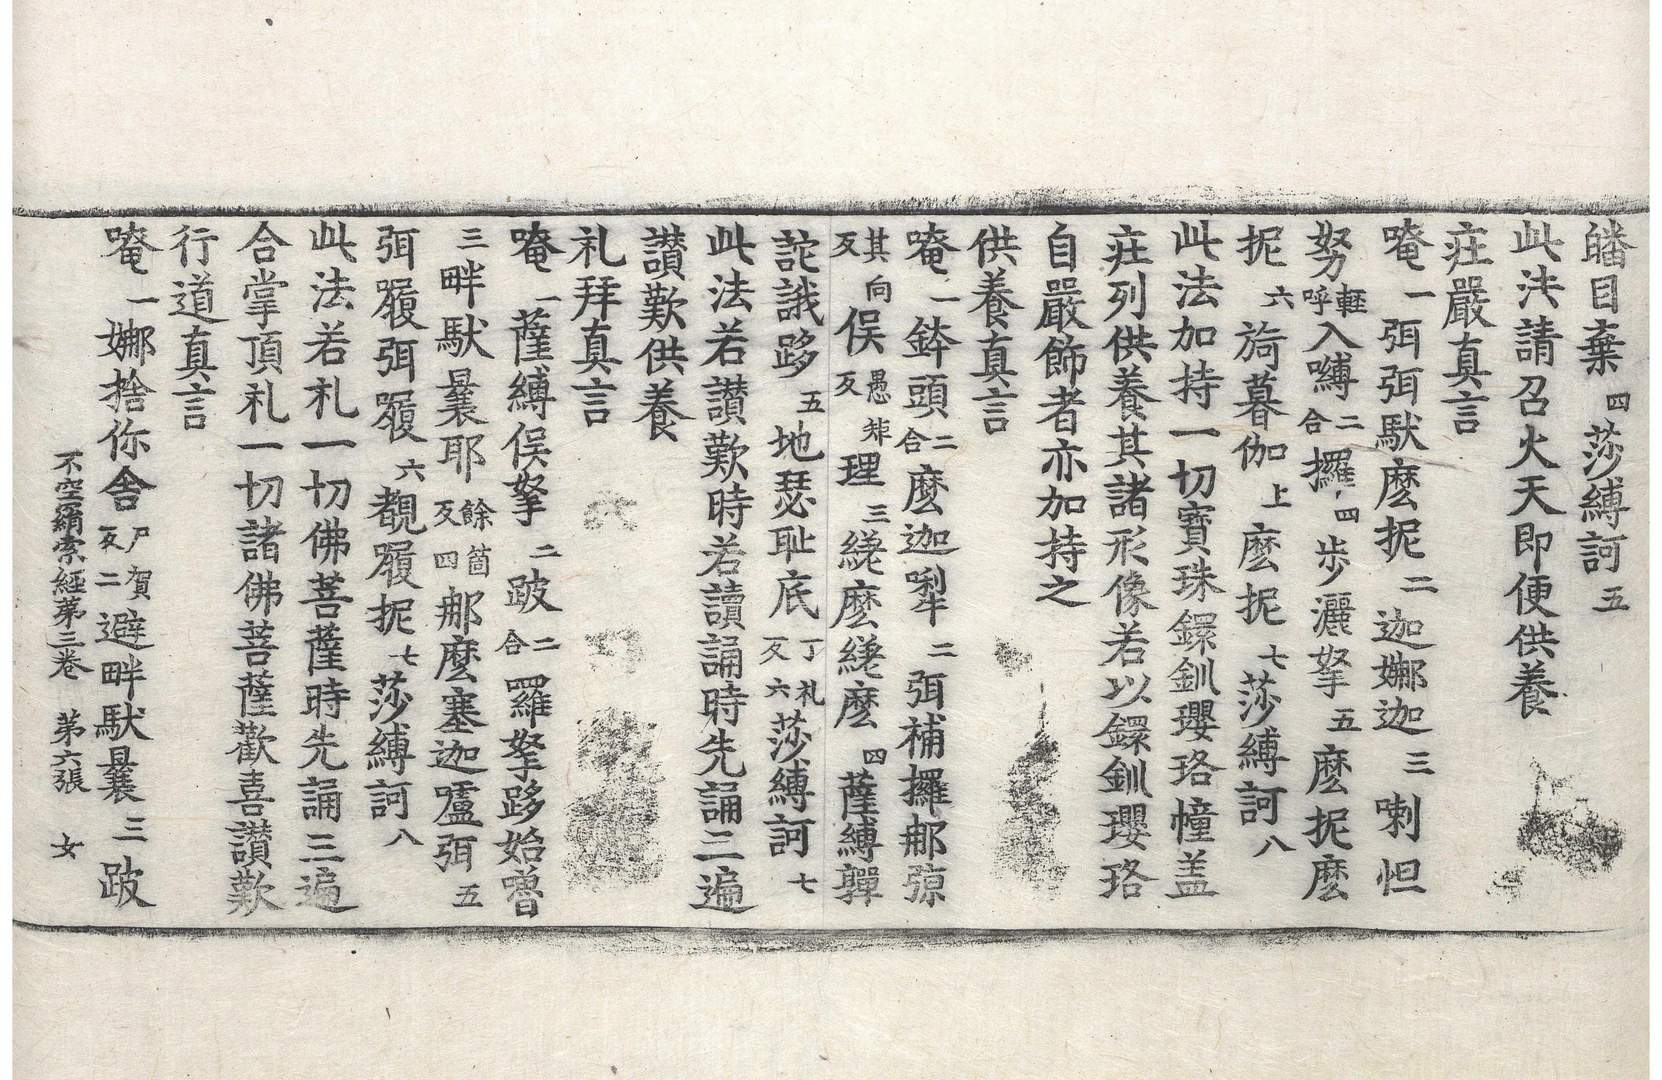 皤目棄四莎縛訶五
此法請召火天即便供養
莊嚴真言
唵一弭弭馱麽抳二迦娜迦三喇怛
努輕呼入嚩二合攞四步灑拏五麽抳麽
抳六旖暮伽上麽抳七莎縛訶八
此法加持一切寶珠鐶釧瓔珞幢盖
莊列供養其諸形像若以鐶釧瓔珞
自嚴飾者亦加持之
供養真言
唵一鉢頭二合麽迦㘑二弭補攞郍弶
其向反俣愚矩反理三縒麽縒麽四薩縛亸
詑誐跢五地瑟耻底丁礼反六莎縛訶七
此法若讃歎時若讀誦時先誦三遍
讃歎供養
礼拜真言
唵一薩縛俣拏二跛二合羅拏跢始嚕
三畔馱曩耶餘箇反四郍麽塞迦嚧弭五
弭履弭履六覩履抳七莎縛訶八
此法若礼一切佛菩薩時先誦三遍
合掌頂礼一切諸佛菩薩歡喜讃歎
行道真言
唵一娜捨你舍尸賀反二避畔馱曩三跛
不空羂索經第三卷 第六張 女